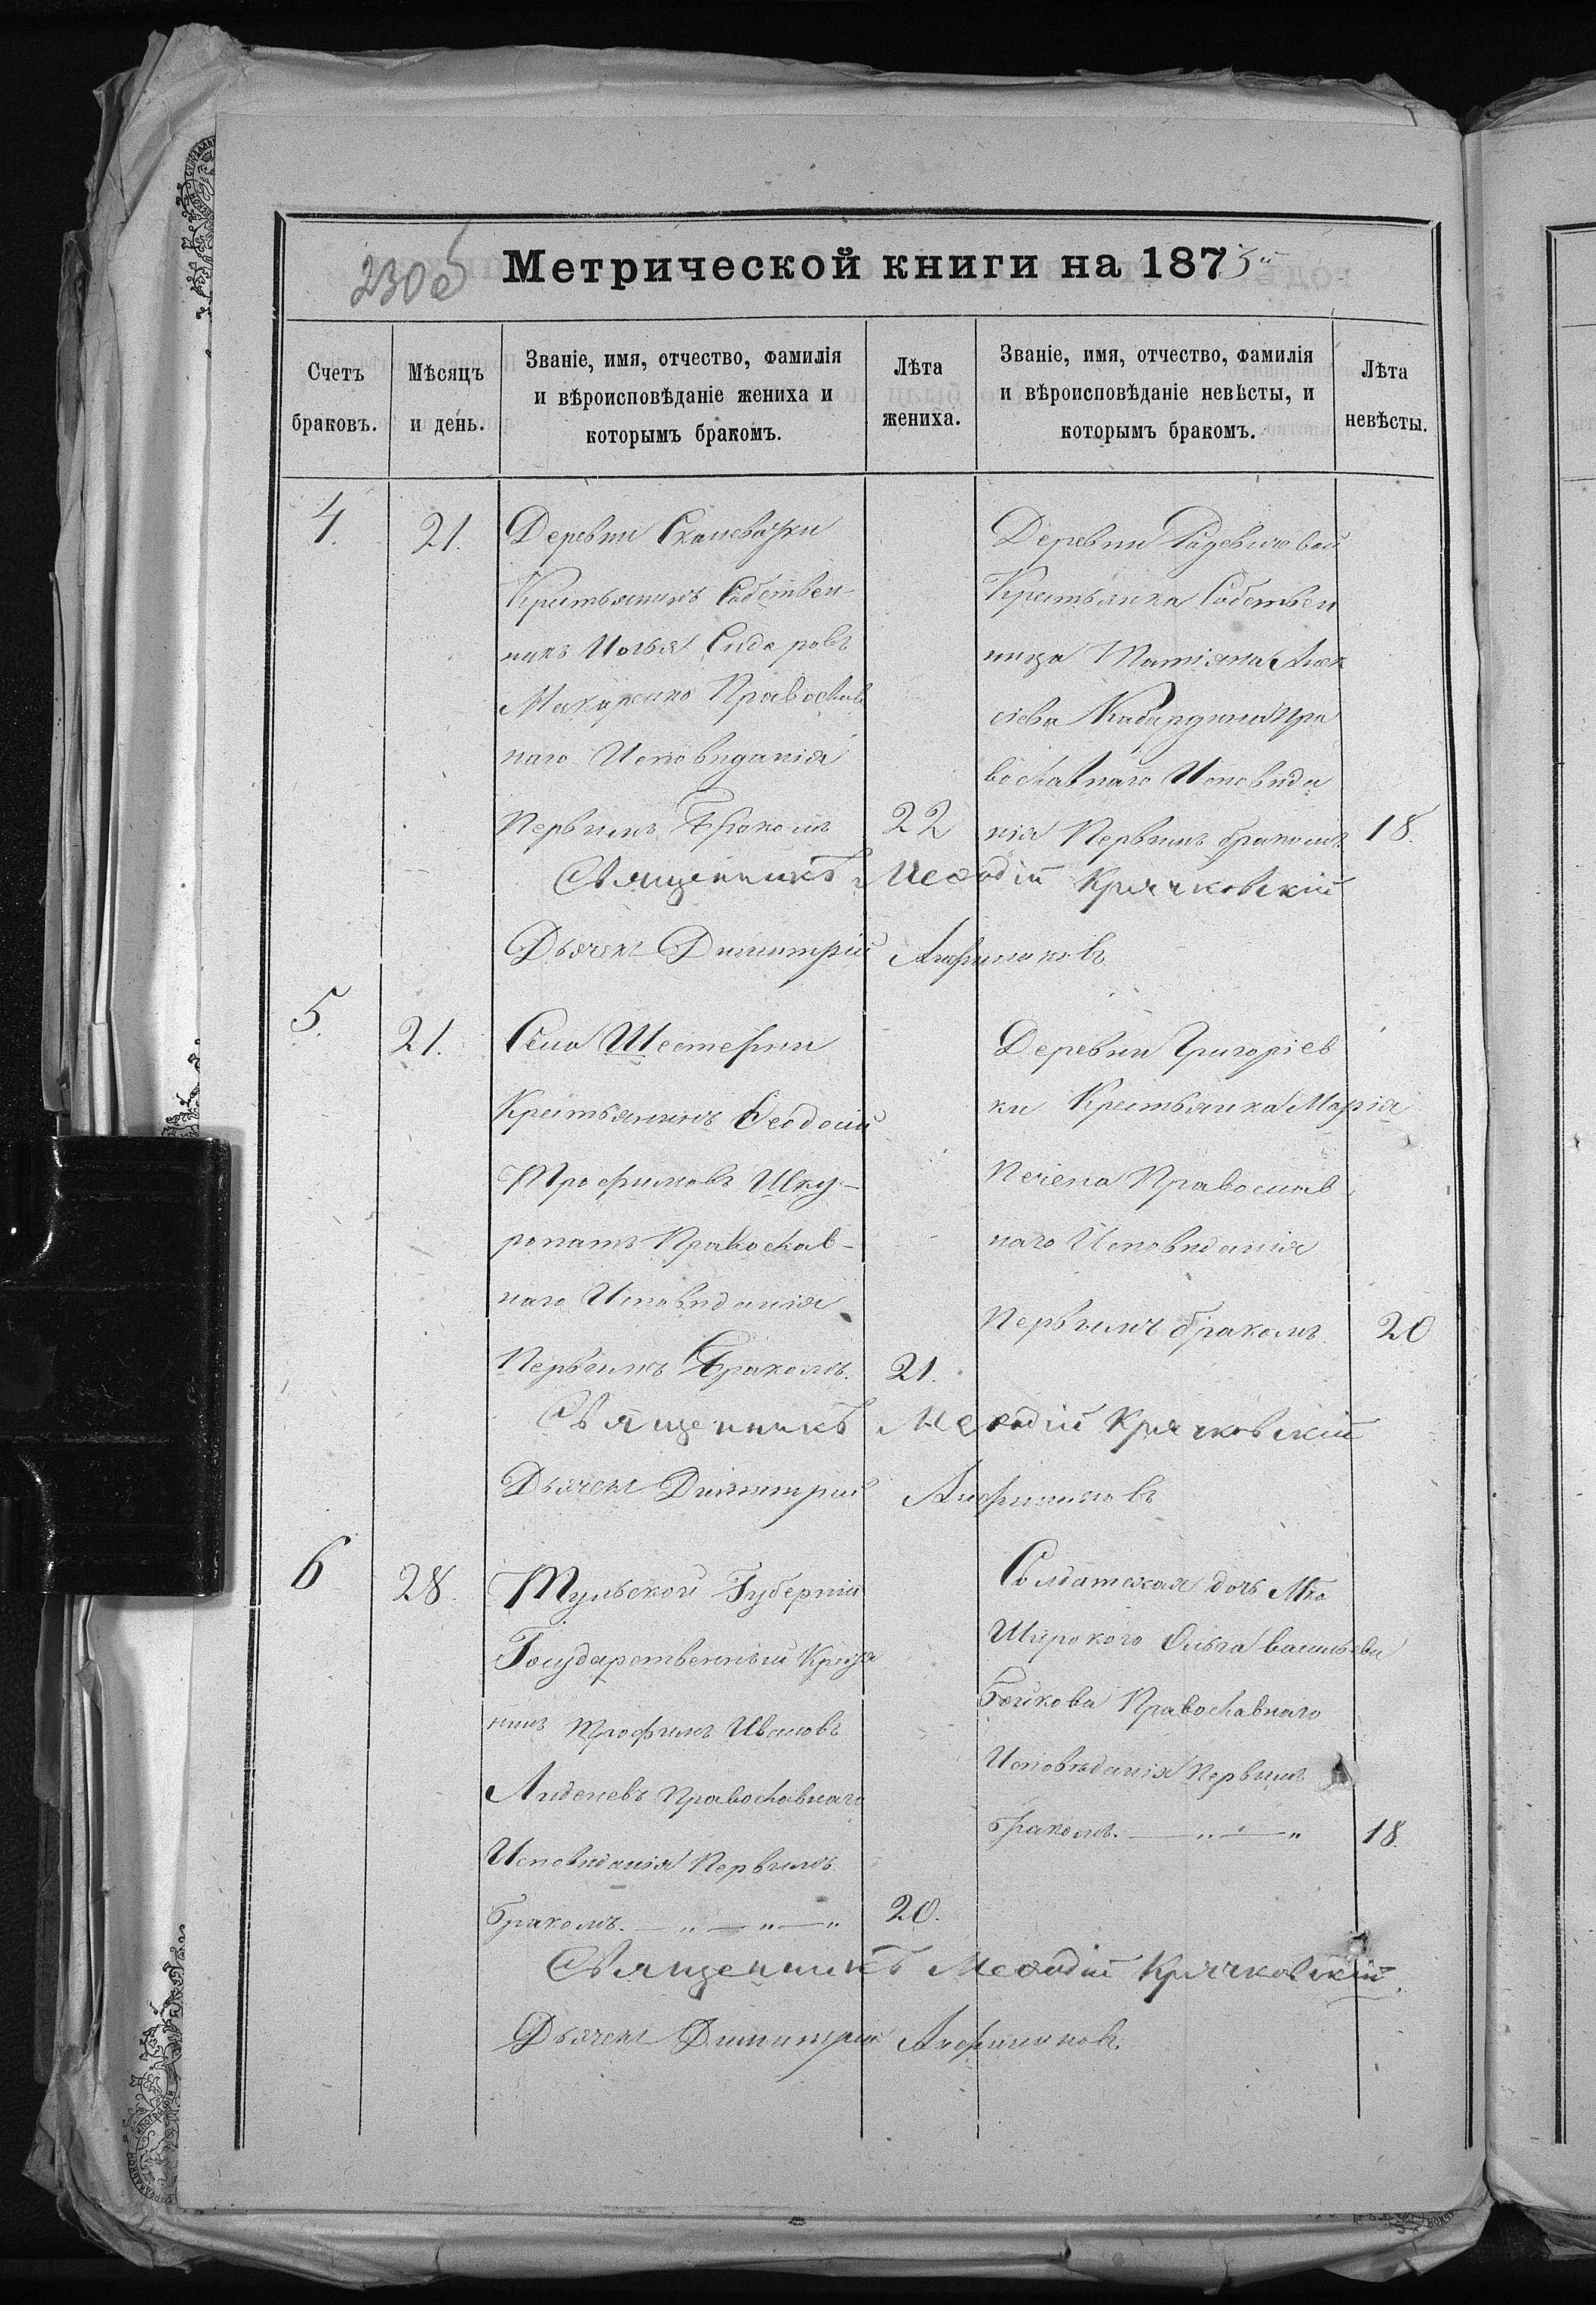 230об
Метрической книги на 1875й
Счетъ браковъ.
Мѣсяцъ и день.
Званіе, имя, отчество, фамилія и вѣроисповѣданіе жениха и которымъ бракомъ.
Лѣта жениха.
Званіе, имя, отчество, фамилія и вѣроисповѣданіе невѣсты, и которымъ бракомъ.
Лѣта невѣсты.
4.
21.
Деревни Скалеватки
Крестьянинъ Собствен-
никъ Илья Сидоровъ
Макаренко Православ
наго Исповѣданія
Первымъ Бракомъ
22
Деревни Радевичевой
Крестьянка Собствен
ница Татіяна Алек
сіева Кабардина Пра
вославнаго Исповѣда
нія Первымъ бракомъ
18.
Священникъ Меѳодій Крячковскій
Дьячекъ Димитрій Анфимовъ
5.
21.
Села Шестерни
Крестьянинъ Ѳеодосій
Трофимовъ Шку-
ропатъ Православ-
наго Исповѣданія
Первымъ Бракомъ.
21.
Деревни Григоріев
ки Крестьянка Марія
Печена Православ
наго Исповѣданія
Первымъ бракомъ
20
Священникъ Меѳодій Крячковскій
Дьячекъ Димитрій
6
28.
Тульской Губерніи
Государственный Крестья
нинъ Трофимъ Ивановъ
Православнаго
Исповѣданія Первымъ
бракомъ. — „ — „ — „
20.
Солдатская дочь М-ка
Широкого Ольга Васильева
Бойкова Православнаго
Исповѣданія Первымъ
бракомъ. — „ — „
18.
Священникъ Меѳодій Крячковскій.
Дьячекъ Димитрій